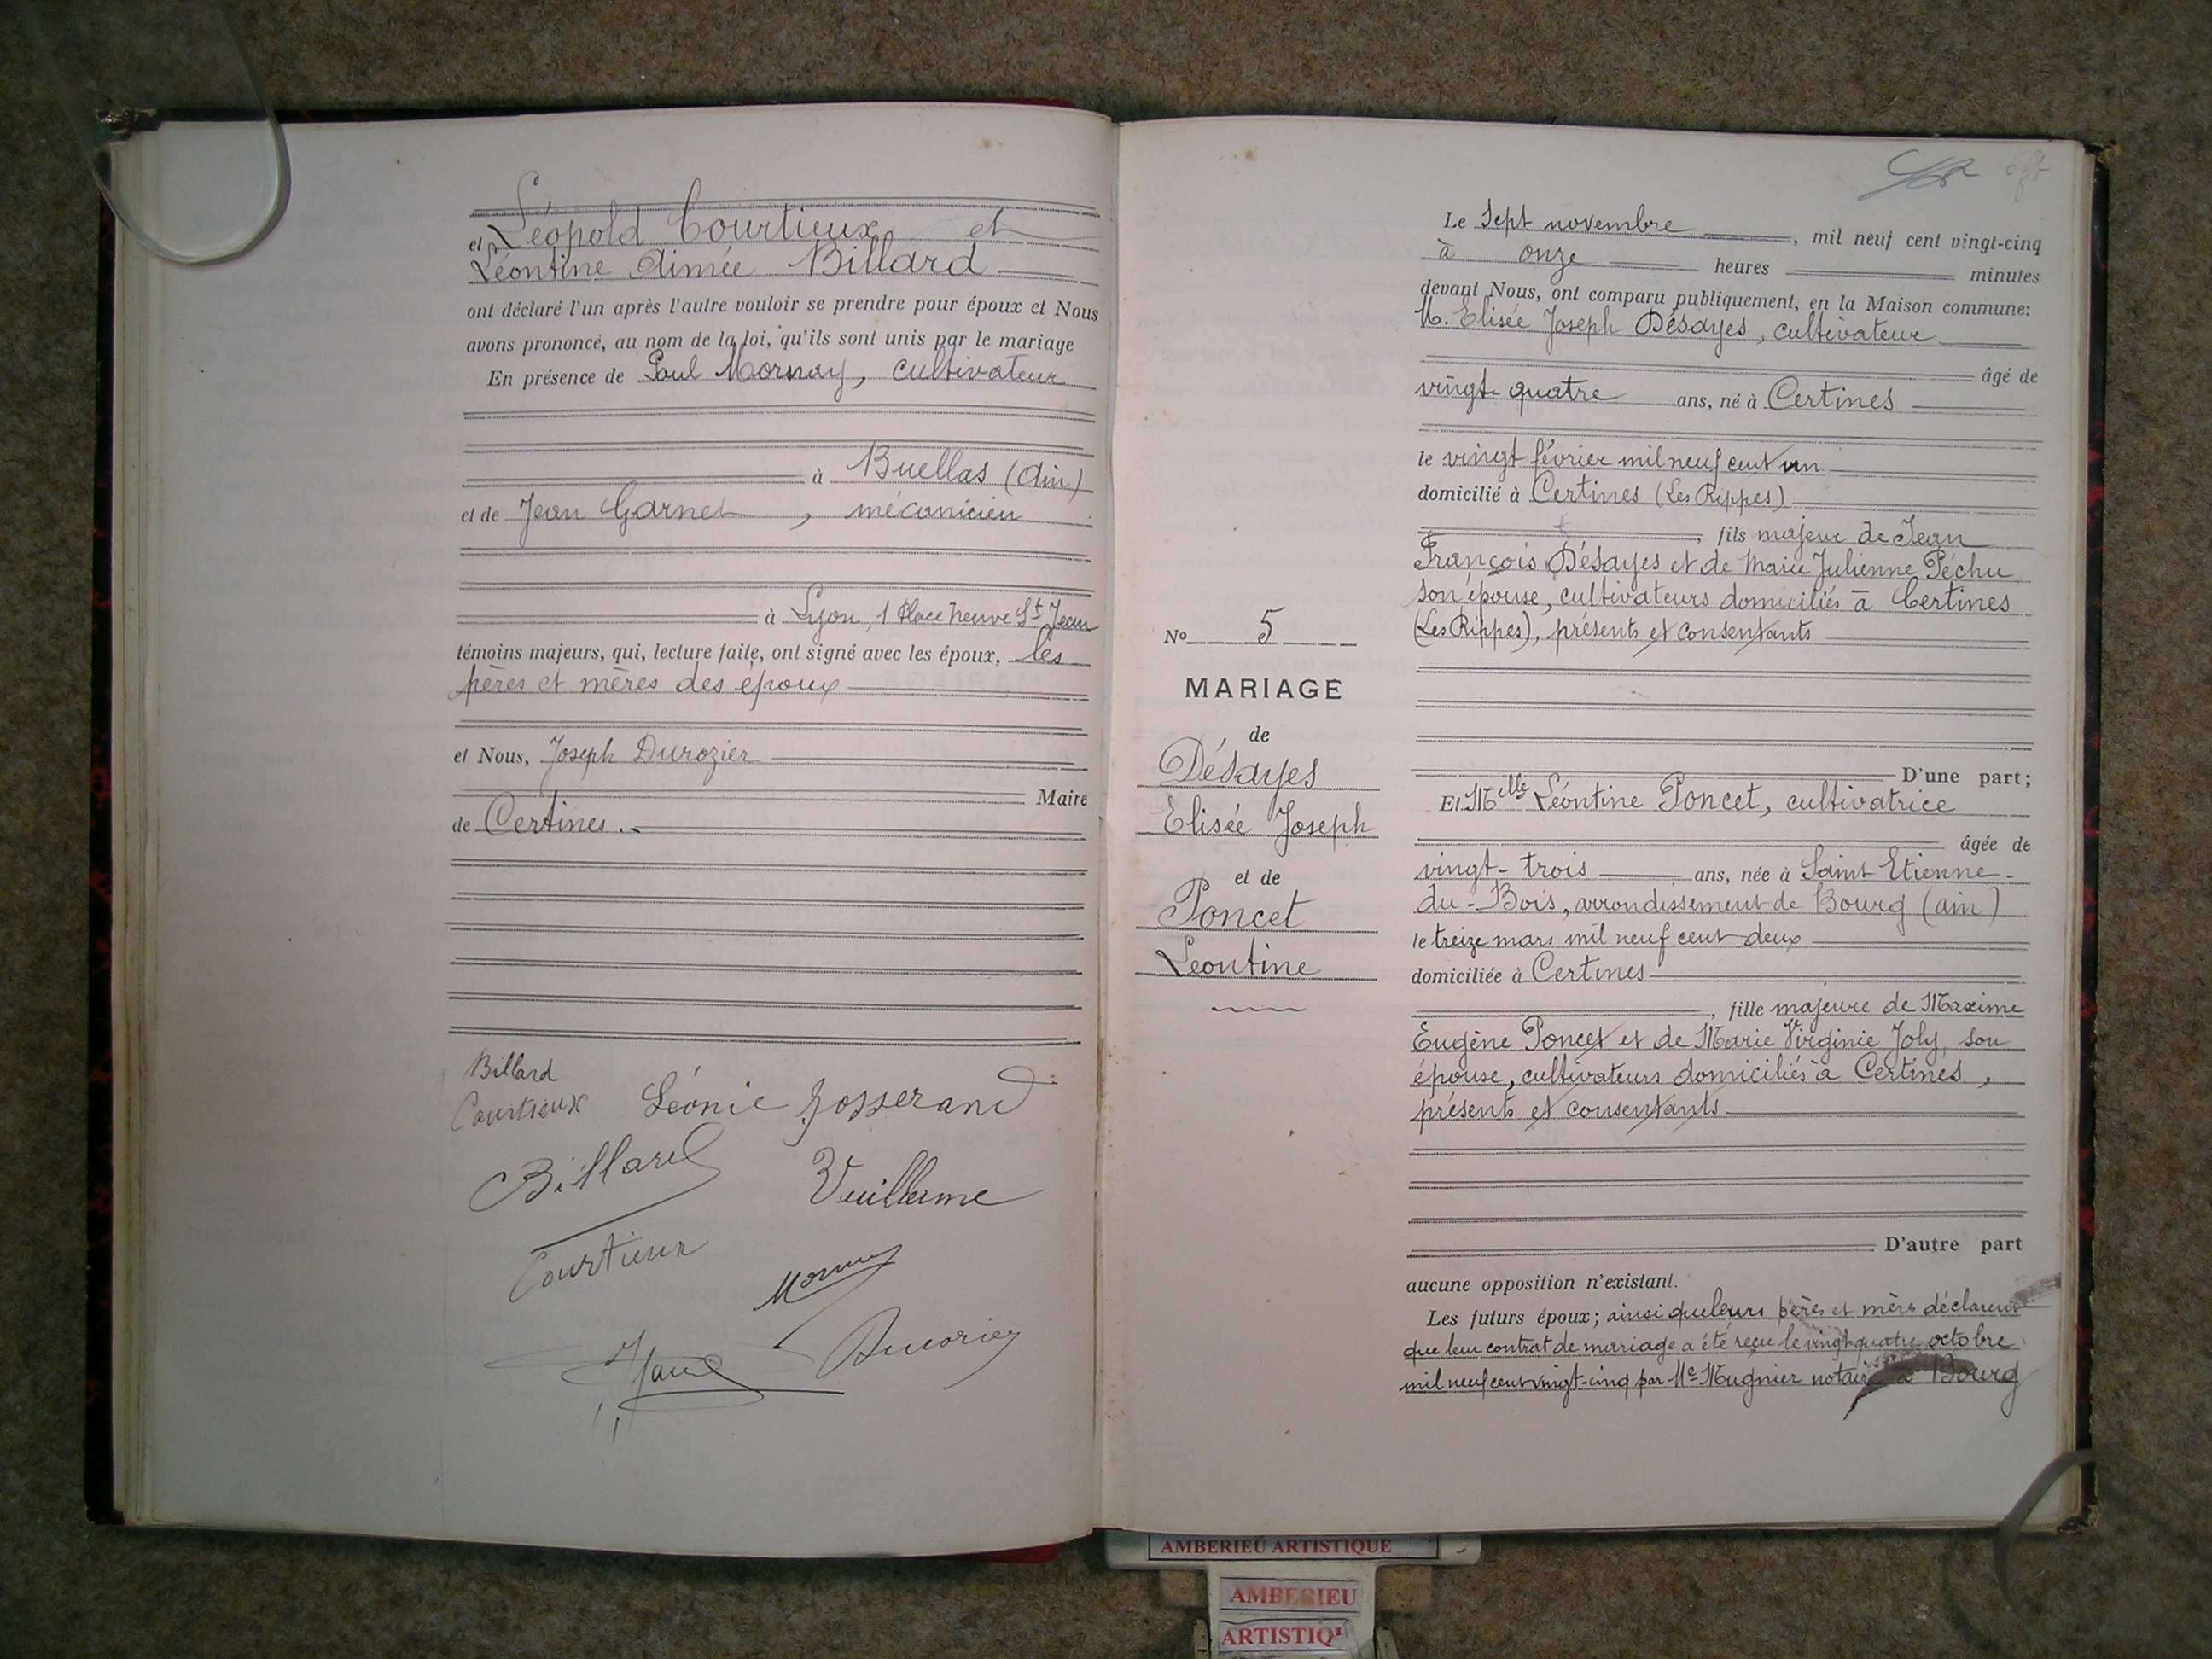 et Léopold Courtieux et
Léontine Aimée Billard
ont déclaré l'un après l'autre vouloir se prendre pour époux et Nous
avons prononcé, au nom de la loi, qu'ils sont unis par le mariage
En présence de Paul Mornay, cultivateur
à Buellas (Ain)
et de Jean Garnet, mécanicien
à Lyon, 1 Place neuve St Jean
témoins majeurs, qui, lecture faite, ont signé avec les époux, les
pères et mères des époux
et Nous, Joseph Durozier
Maire
de Certines.
Billard
Courtieux Léonie Josserand
Billard Vuillerme
Courtieux
Mornay
Durozier
Le sept novembre, mil neuf cent vingt-cinq
à onze heures minutes
devant Nous, ont comparu publiquement, en la Maison commune:
M. Elisée Joseph Désayes, cultivateur
âgé de
vingt-quatre ans, né à Certines
le vingt février mil neuf cent un
domicilié à Certines (Les Rippes)
, fils majeur de Jean
François Désayes et de Marie Julienne Péchu
son épouse, cultivateurs domiciliés à Certines
(Les Rippes), présents et consentants
D'une part;
Et Melle Léontine Poncet, cultivatrice
âgée de
vingt-trois ans, née à Saint Etienne-
du-Bois, arrondissement de Bourg (ain)
le treize mars mil neuf cent deux
domiciliée à Certines
, fille majeure de Maxime
Eugène Poncet et de Marie Virginie Joly, son
épouse, cultivateurs domiciliés à Certines,
présents et consentants
D'autre part
aucune opposition n'existant.
Les futurs époux; ainsi que leurs pères et mères déclarent
que leur contrat de mariage a été reçu le vingt quatre octobre
mil neuf cent vingt-cinq par Me Mugnier notaire à Bourg
No 5
MARIAGE
de
Désayes
Elisée Joseph
et de
Poncet
Léontine
AMBERIEU ARTISTIQUE
AMBERIEU
ARTISTIQU